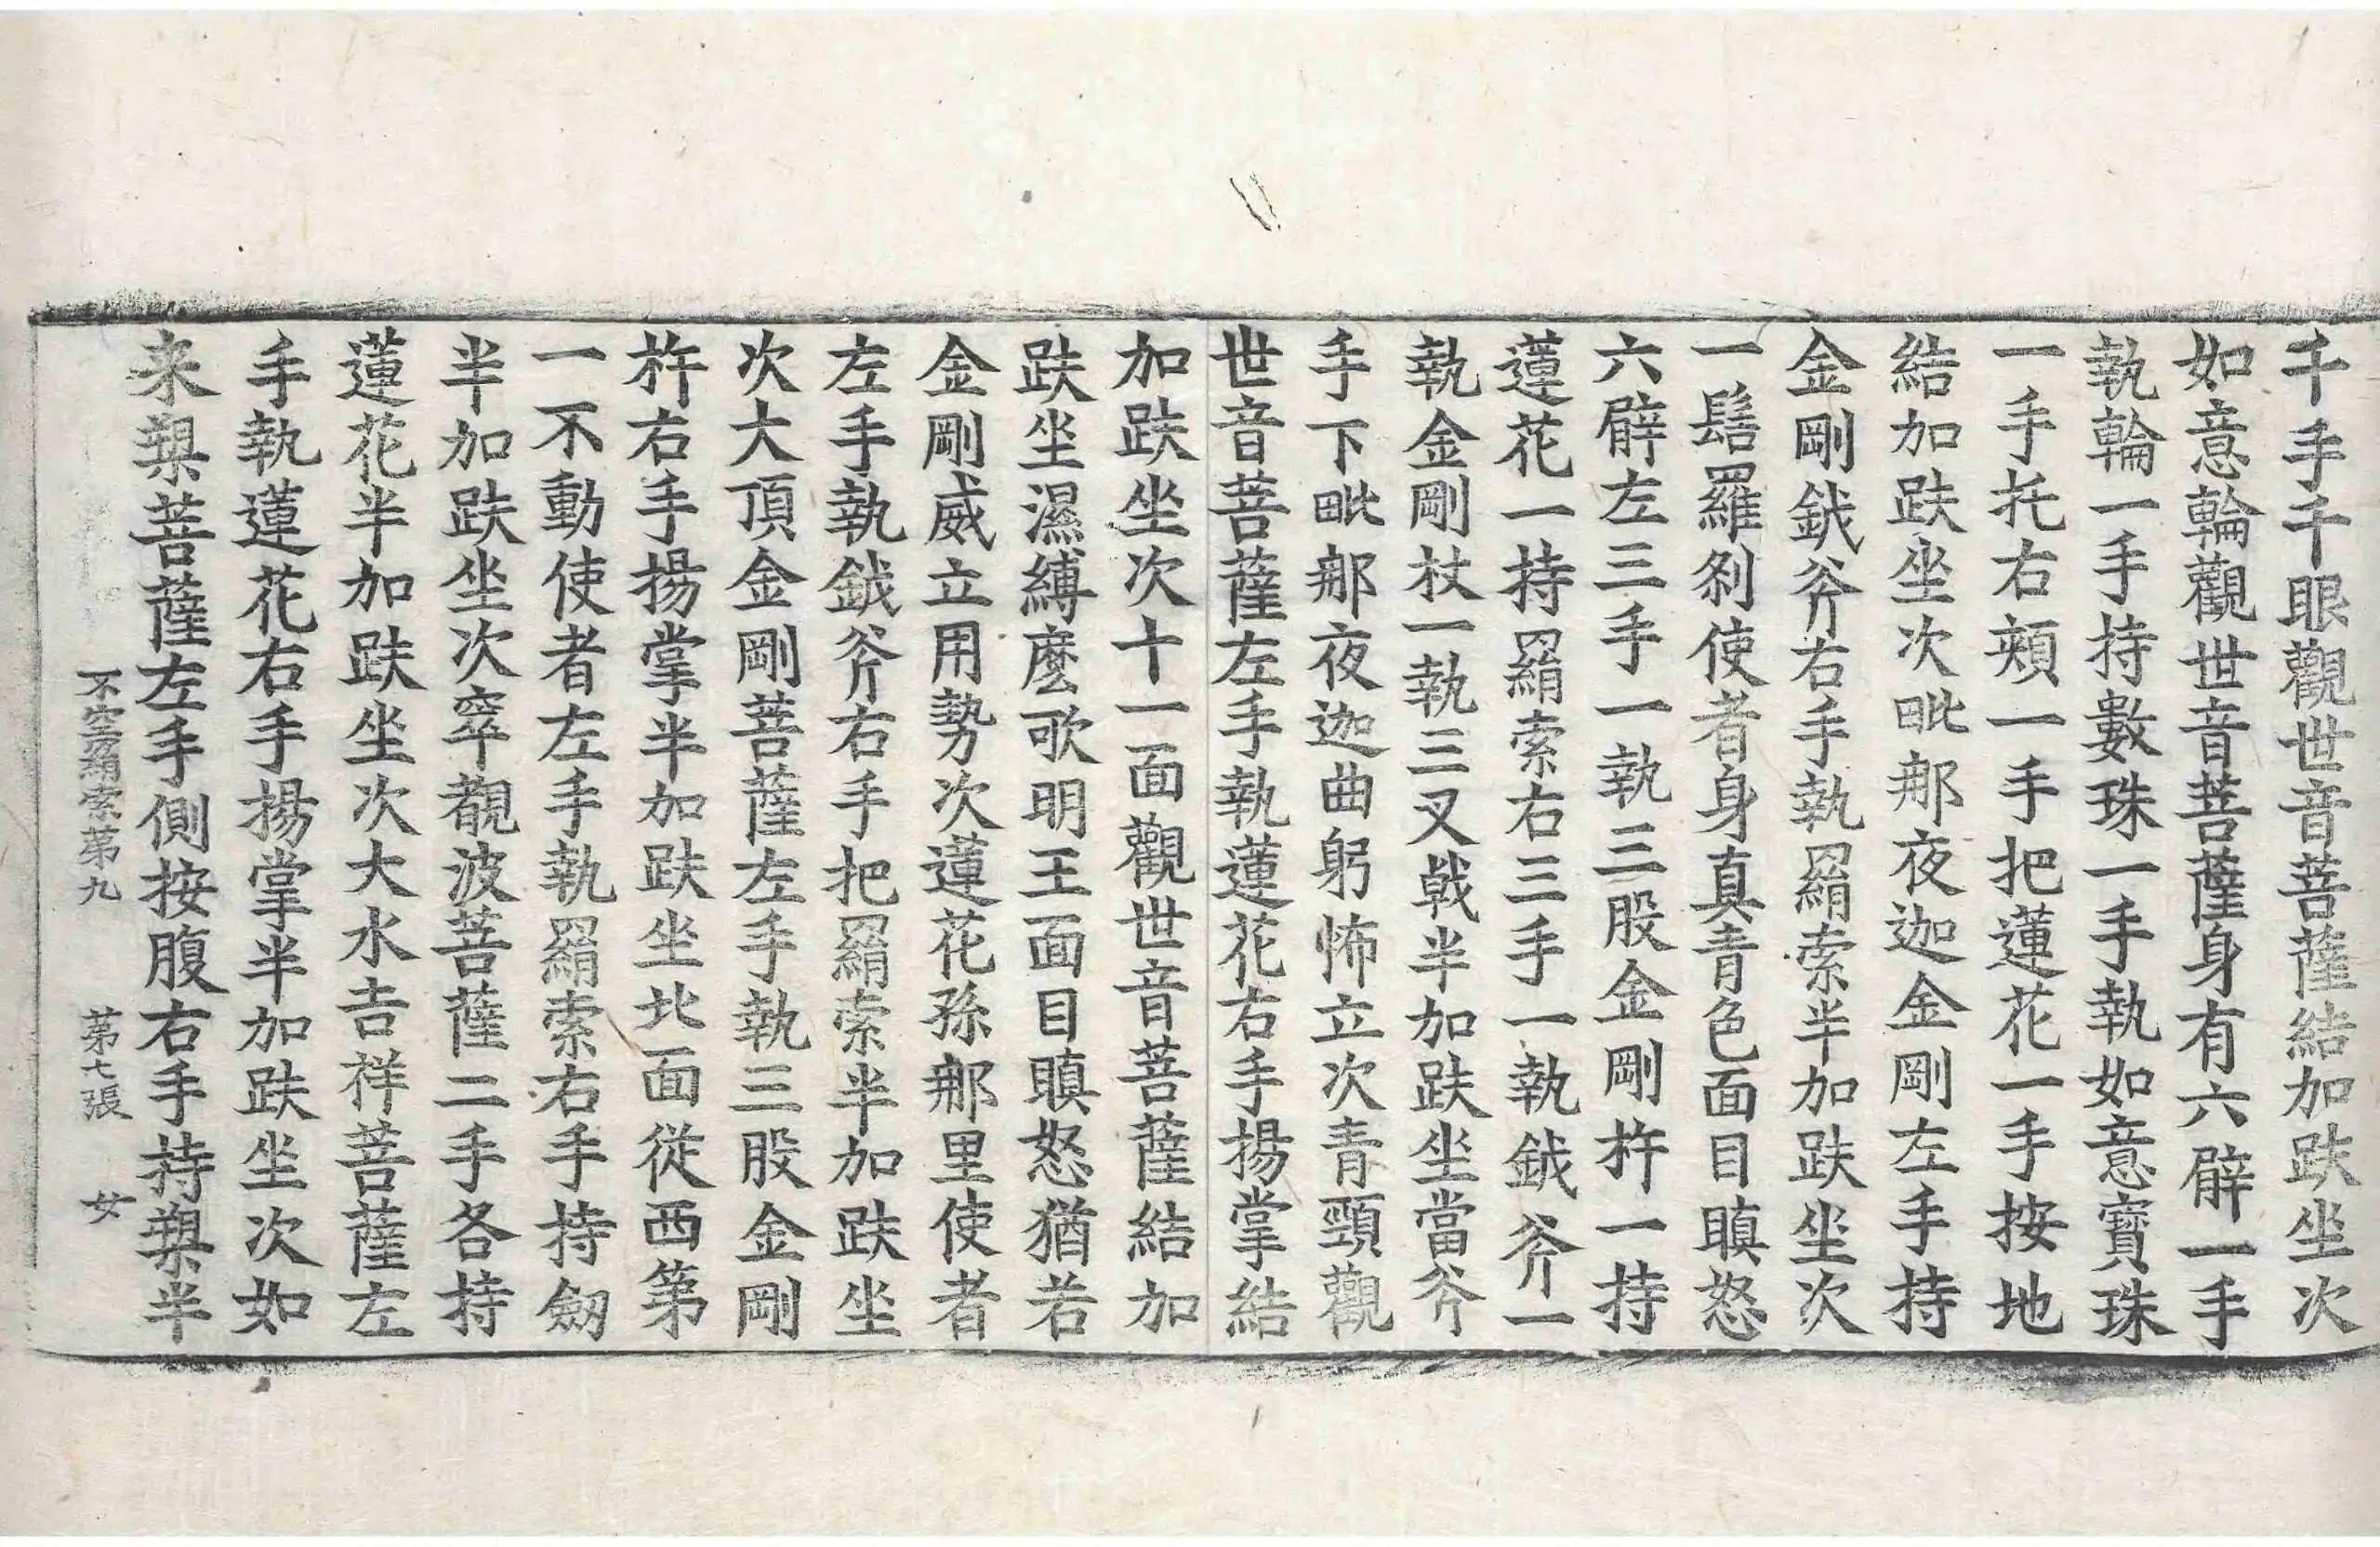 千手千眼觀世音菩薩結加趺坐次
如意輪觀世音菩薩身有六臂一手
執輪一手持數珠一手執如意寶珠
一手托右頰一手把蓮花一手按地
結加趺坐次毗那夜迦金剛左手持
金剛鉞斧右手執羂索半加趺坐次
一髻羅剎使者身真青色面目瞋怒
六臂左三手一執三股金剛杵一持
蓮花一持羂索右三手一執鉞斧一
執金剛杖一執三叉戟半加趺坐當斧
手下毗那夜迦曲躬怖立次青頸觀
世音菩薩左手執蓮花右手揚掌結
加趺坐次十一面觀世音菩薩結加
趺坐濕縛麼歌明王面目瞋怒猶若
金剛威立用勢次蓮花孫那里使者
左手執鉞斧右手把羂索半加趺坐
次大頂金剛菩薩左手執三股金剛
杵右手揚掌半加趺坐北面從西第
一不動使者左手執羂索右手持劒
半加趺坐次窣覩波菩薩二手各持
蓮花半加趺坐次大水吉祥菩薩左
手執蓮花右手揚掌半加趺坐次如
来槊菩薩左手側按腹右手持槊半
不空羂索第九 第七張 女